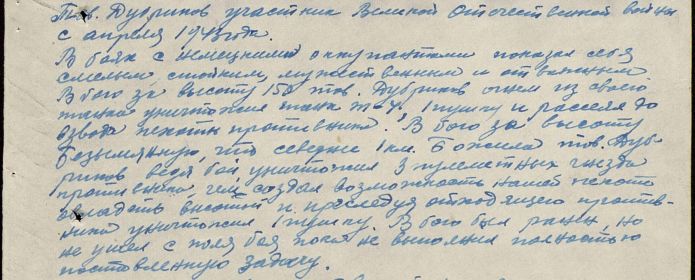 Тов. Дубриков участник Великой Отечественной войны
с апреля 1943 года.
В боях с немецкими оккупантами показал себя
смелым, стойким, мужественным и отважным
В бою за высоту 150 тов. Дубриков огнем из своего
танка уничтожил танк 1 пушку и рассеял до
взвода пехоты противника. В бою за высоту
Безымянную, что севернее 1 км. тов. Дуб-
риков ведя бой, уничтожил 3 пулеметных гнезда
противника, чем создал возможность нашей пехоте
овладеть высотой и преследуя отходящего против-
ника уничтожил 1 пушку. В бою был ранен, но
не ушел с поля боя пока не выполнил полностью
поставленную задачу.